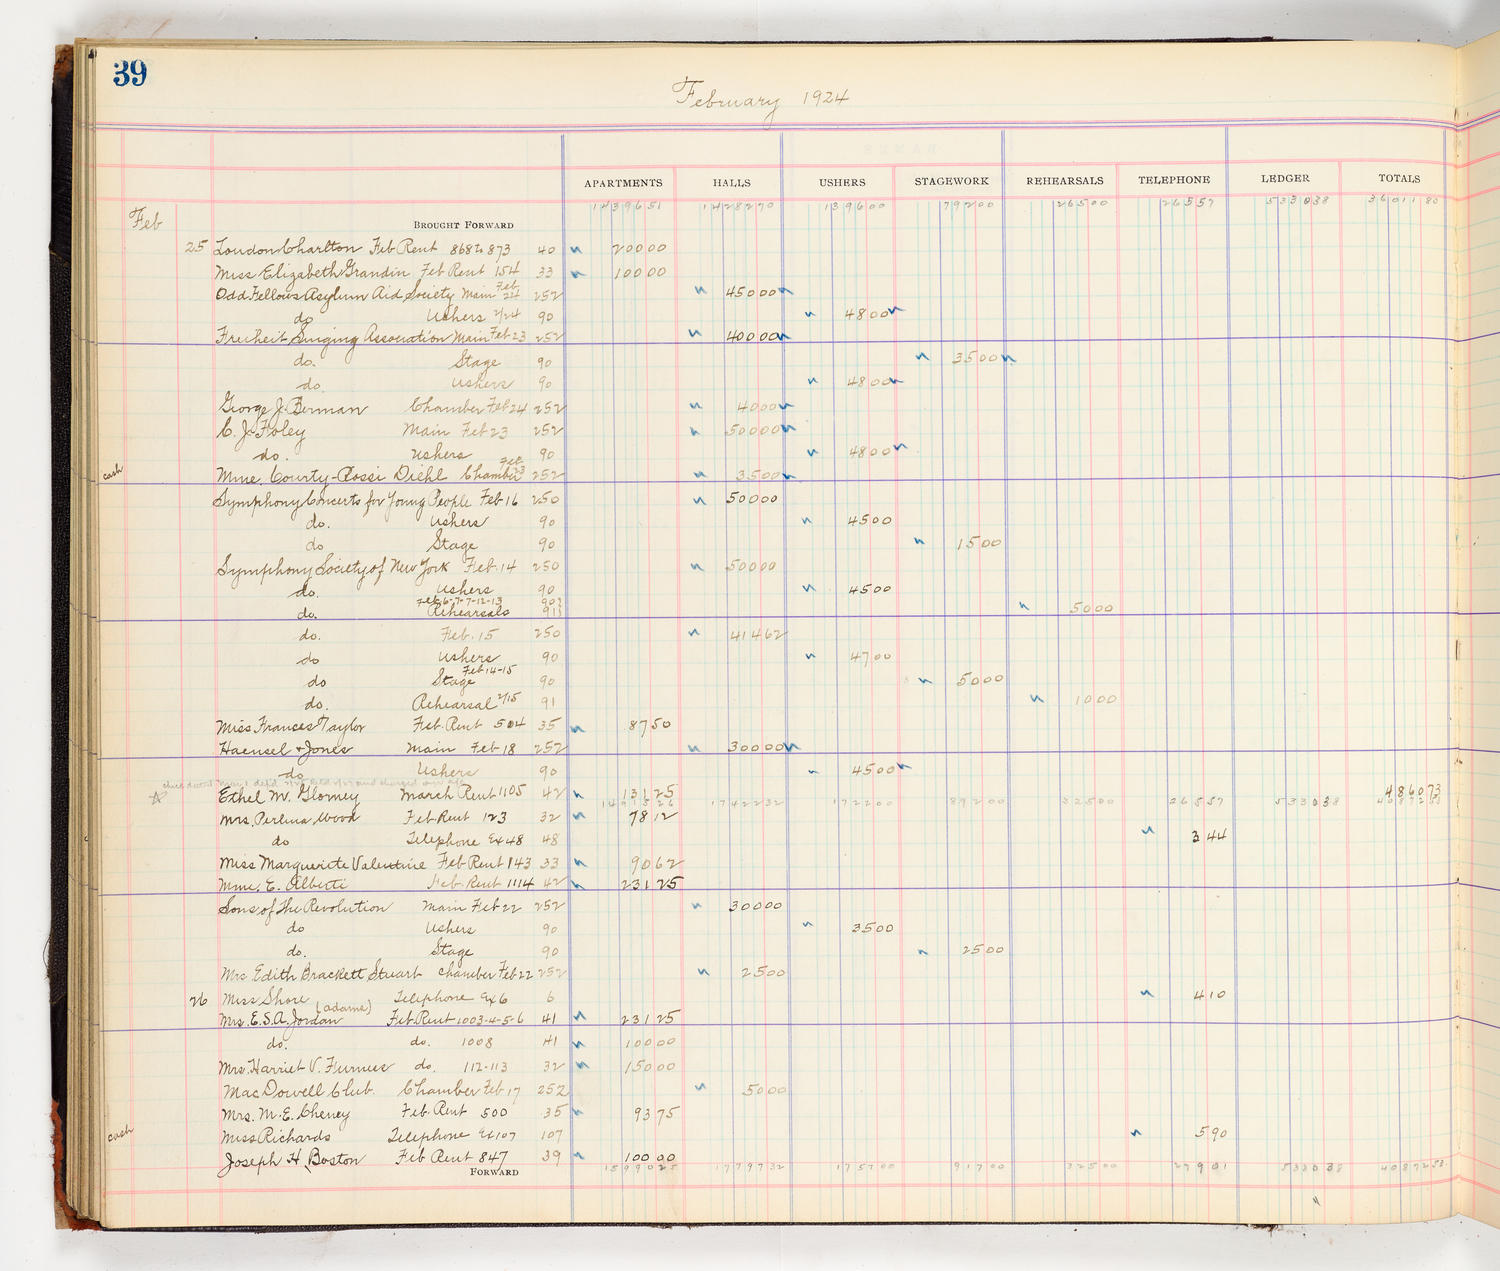 39
February 1924
APARTMENTS HALLS USHERS STAGEWORK REHEARSALS TELEPHONE LEDGER TOTALS
1439651 1428270 139600 79200 26500 26557 533038 3601180
Feb BROUGHT FORWARD
25 Loudon Charlton Feb Rent 868 to 873 40 20000
Miss Elizabeth Grandin Feb Rent 154 33 10000
Odd Fellows Asylum Aid Society Main Feb 24 252 45000
do Ushers 2/24 90 4800
Freiheit Singing Association Main Feb 23 252 40000
do. Stage 90 3500
do. Ushers 90 4800
George J. Berman Chamber Feb 24 252 4000
C. J. Foley Main Feb 23 252 50000
do. Ushers 90 4800
cash Mme. Courty-Rossi Diehl Chamber Feb 23 252 3500
Symphony Concerts for Young People Feb 16 250 50000
do. Ushers 90 4500
do Stage 90 1500
Symphony Society of New York Feb. 14 250 50000
do. Ushers 90 4500
do. Feb 6-7-7-12-13 Rehearsals 91 5000
do. Feb. 15 250 41462
do Ushers 90 4700
do Stage Feb 14-15 90 5000
do. Rehearsal 2/15 91 1000
Miss Frances Taylor Feb. Rent 504 35 8750
Haensel & Jones Main Feb 18 252 30000
do Ushers 90 4500
Ethel M. Glomey March Rent 1105 42 13125 486073
1491526 1742232 172200 89200 32500 26557 533038
Mrs. Perlina Wood Feb Rent 123 32 7812
do Telephone Ex 48 48 344
Miss Marguerite Valentine Feb Rent 143 33 9062
Mme. E. Alberti Feb. Rent 1114 42 23125
Sons of the Revolution Main Feb 22 252 30000
do Ushers 90 3500
do. Stage 90 2500
Mrs Edith Brackett Stuart Chamber Feb 22 252 2500
26 Miss Shore Telephone Ex 6 6 410
Mrs. E. S. A. Jordan (Adams) Feb. Rent 1003-4-5-6 41 23125
do. do. 1008 41 10000
Mrs. Harriet V. Furness do. 112-113 32 15000
MacDowell Club Chamber Feb 17 252 5000
Mrs. M. E. Cheney Feb. Rent 500 35 9375
cash Miss Richards Telephone Ex 107 107 590
Joseph H. Boston Feb Rent 847 39 10000
FORWARD 1599025 1779732 175700 91700 32500 27901 533038 4087253